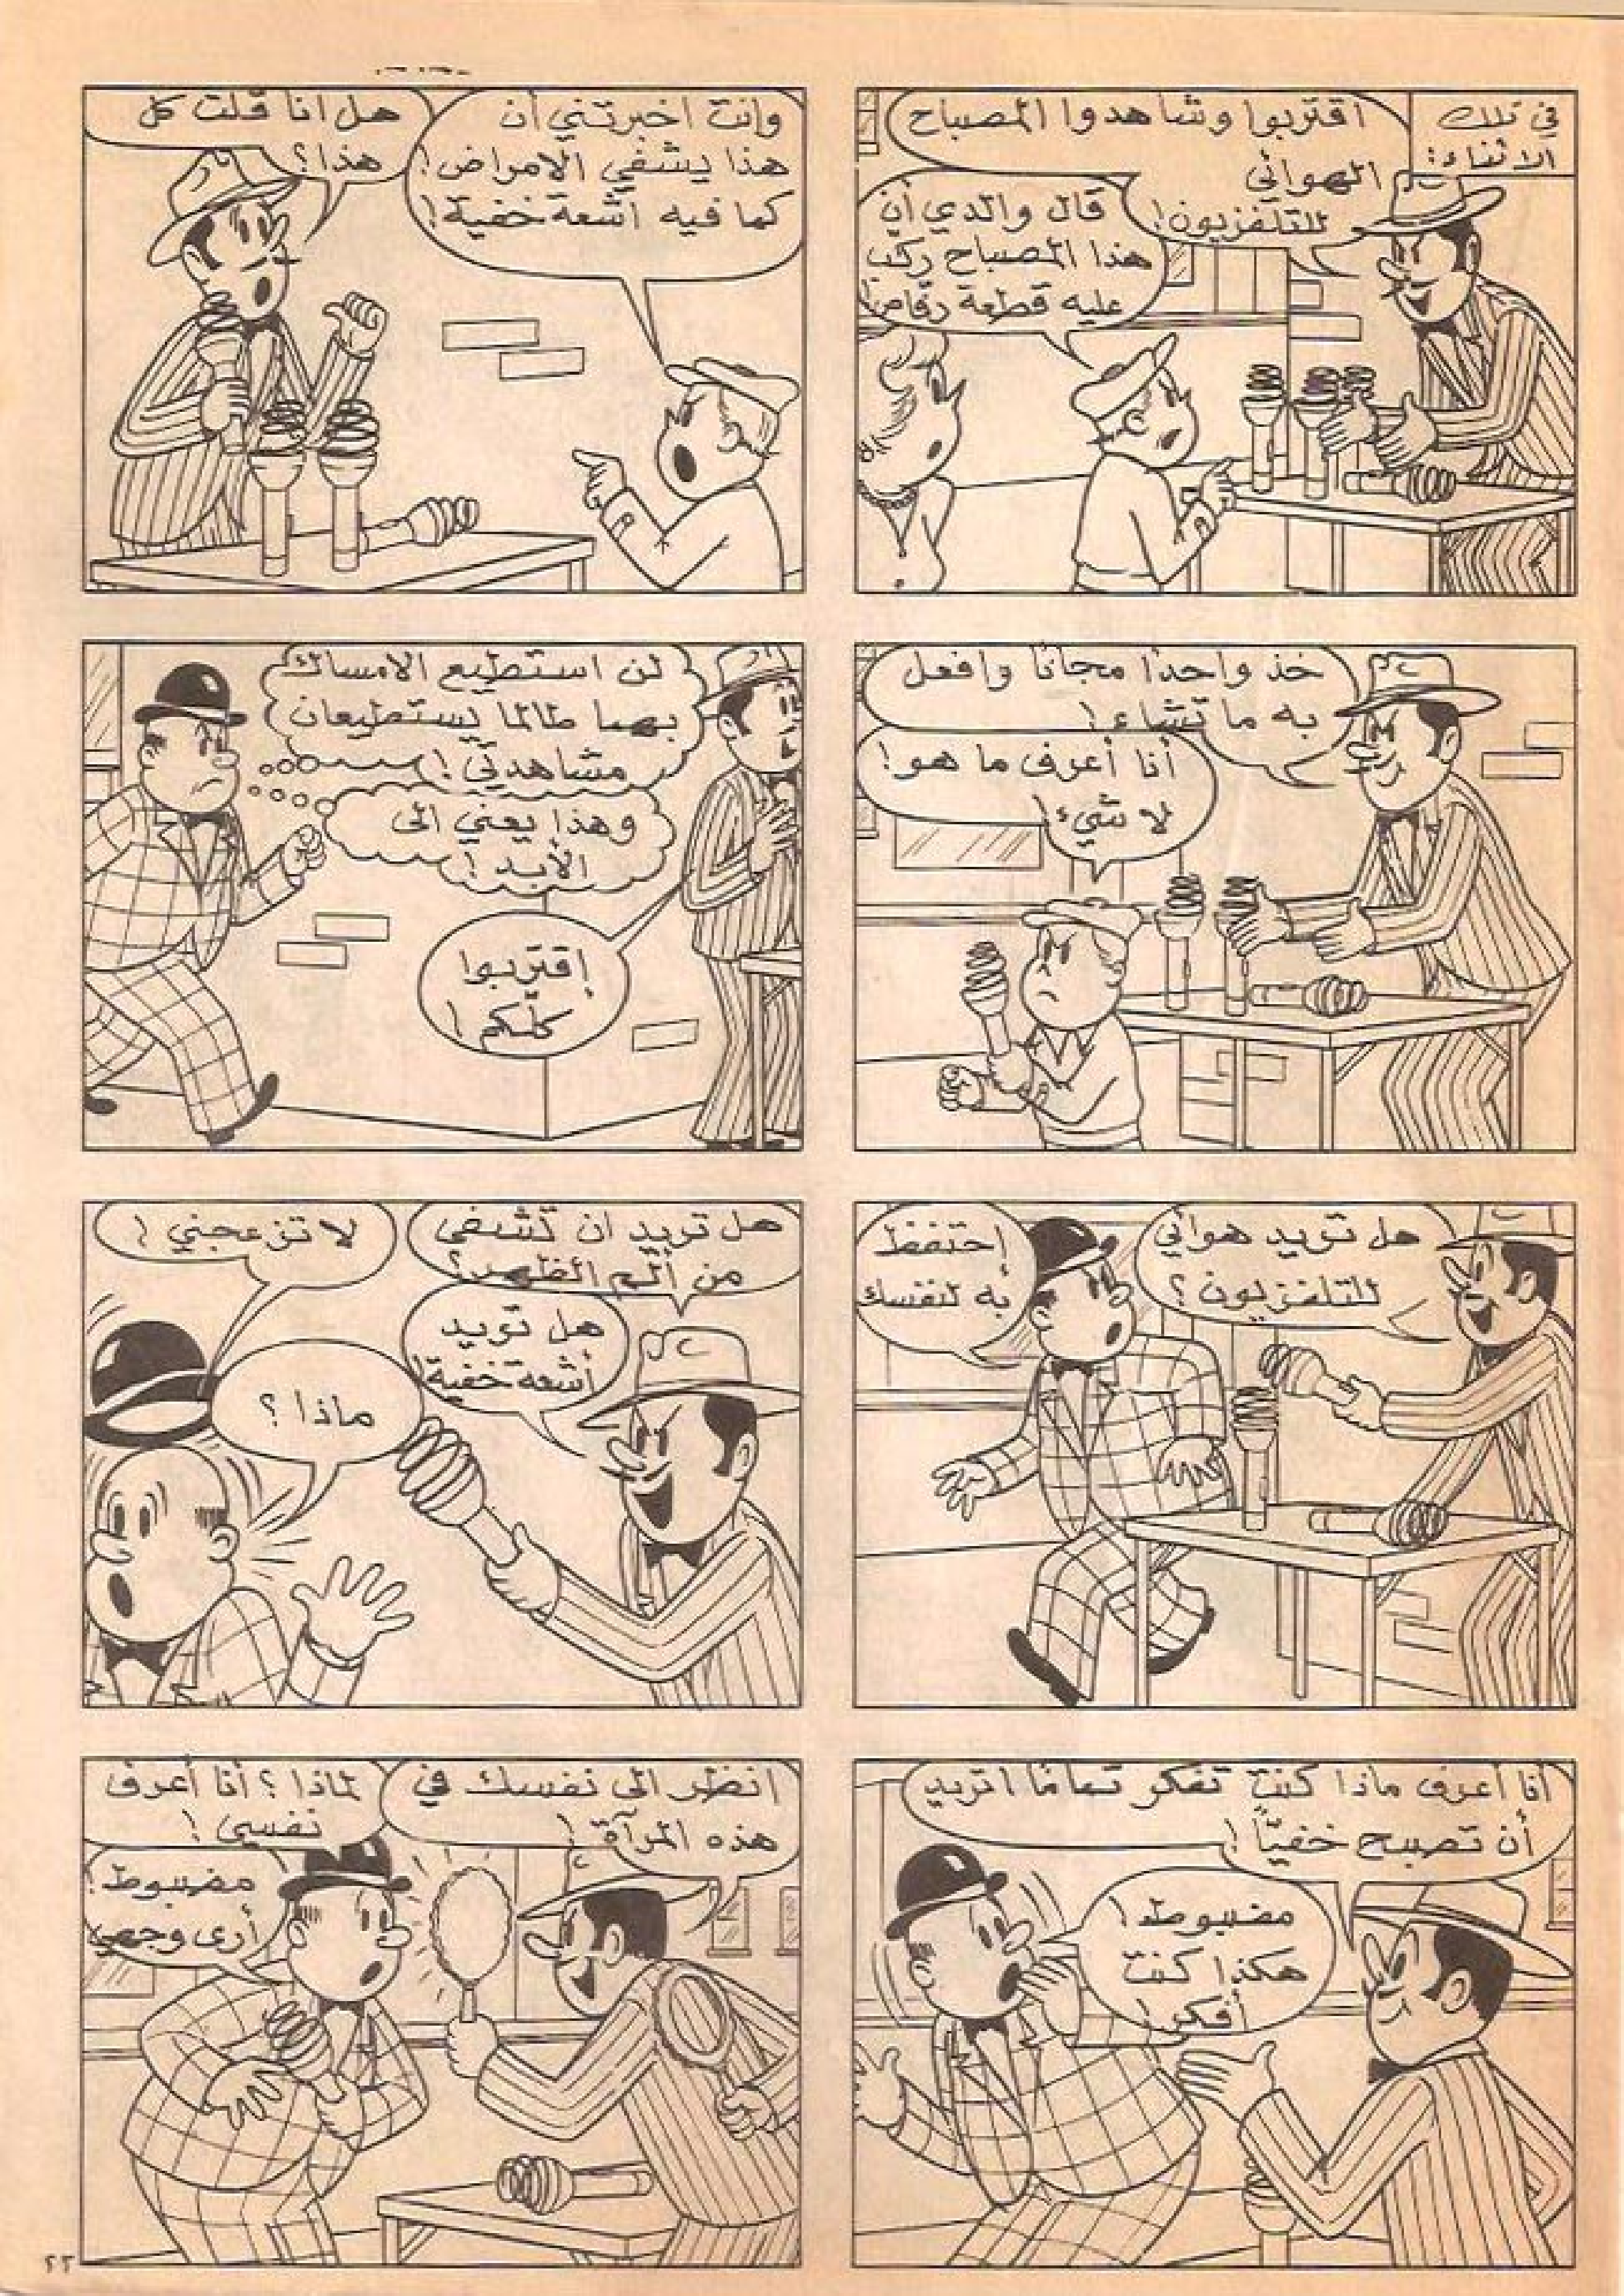 في تلك
الاثناء:
اقتربوا وشاهدوا المصباح
الهوائي
للتلفزيون!
قال والدي أن
هذا المصباح ركب
عليه قطعة رفاص!
وانت اخبرتني أن
هذا يشفي الامراض!
كما فيه اشعة خفية!
هل انا قلت كل
هذا؟
خذ واحدا مجانا وافعل
به ما تشاء!
أنا أعرف ما هو!
لا شيء!
لن استطيع الامساك
بهما طالما يستطيعان
مشاهدتي!
وهذا يعني الى
الأبد!
إقتربوا
كلكم!
هل تريد هوائي
للتلفزيون؟
إحتفظ
به لنفسك
هل تريد ان تشفى
من ألم الظهر؟
لا تزعجني!
هل تريد
أشعة خفية!
ماذا؟
أنا أعرف ماذا كنت تفكر تماما اتريد
أن تصبح خفياً!
مضبوط!
هكذا كنت
أفكر!
انظر الى نفسك في
هذه المرآة!
لماذا؟ أنا أعرف
نفسي!
مضبوط!
أرى وجهي
٢٢